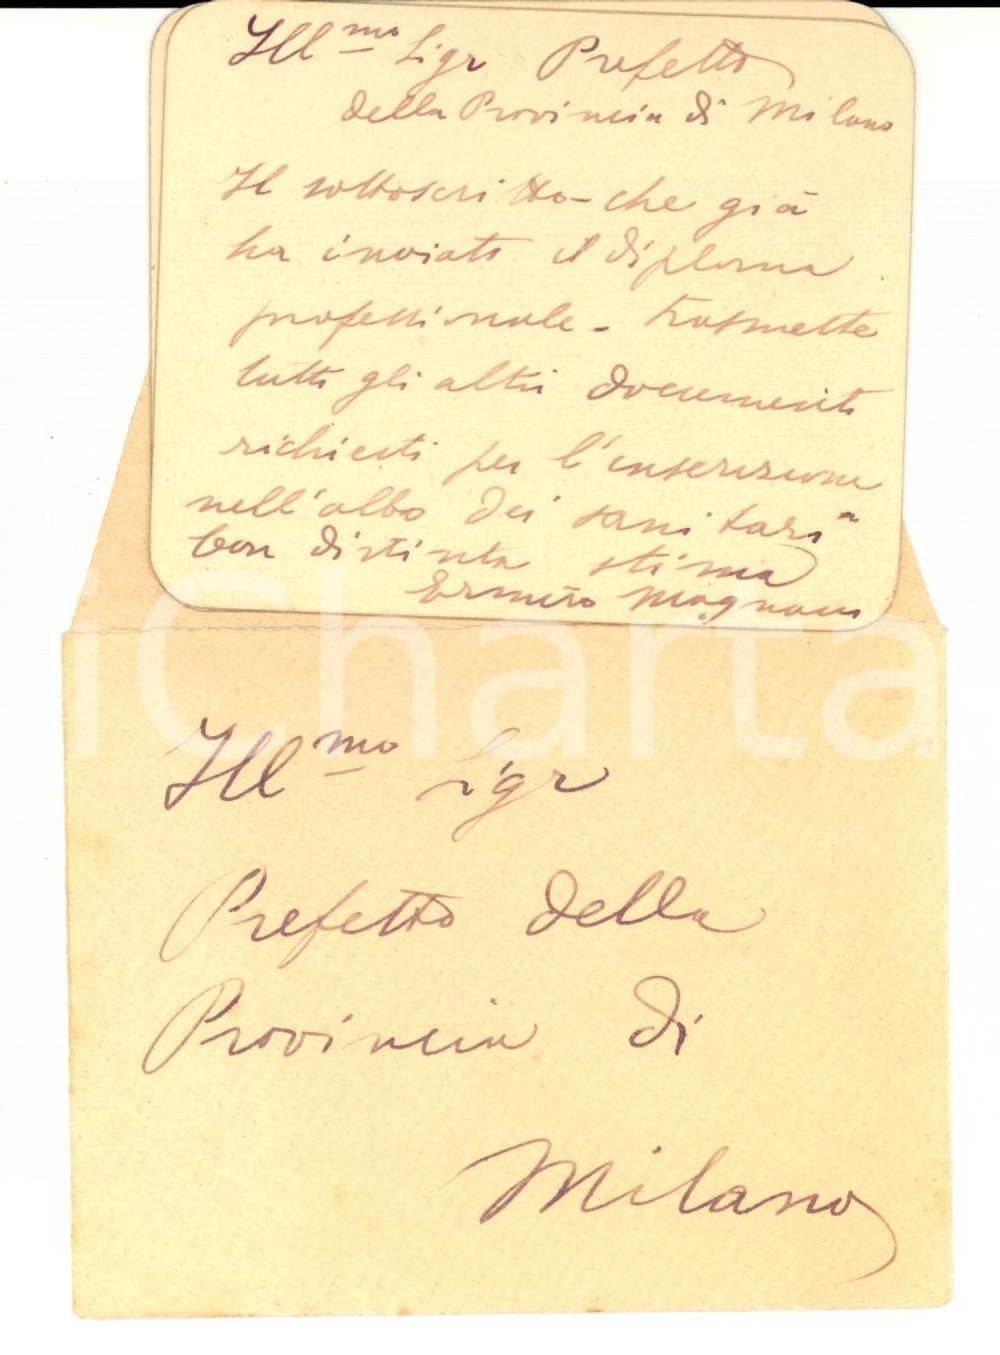 Ill.mo Sigr Prefetto
della Provincia di Milano
Il sottoscritto - che già
ha inviato il diploma
professionale - trasmette
tutti gli altri documenti
richiesti per l'inscrizione
nell'albo dei sanitari
Con distinta stima
Erminio Magnani
iCharta
Ill.mo Sigr
Prefetto della
Provincia di
Milano